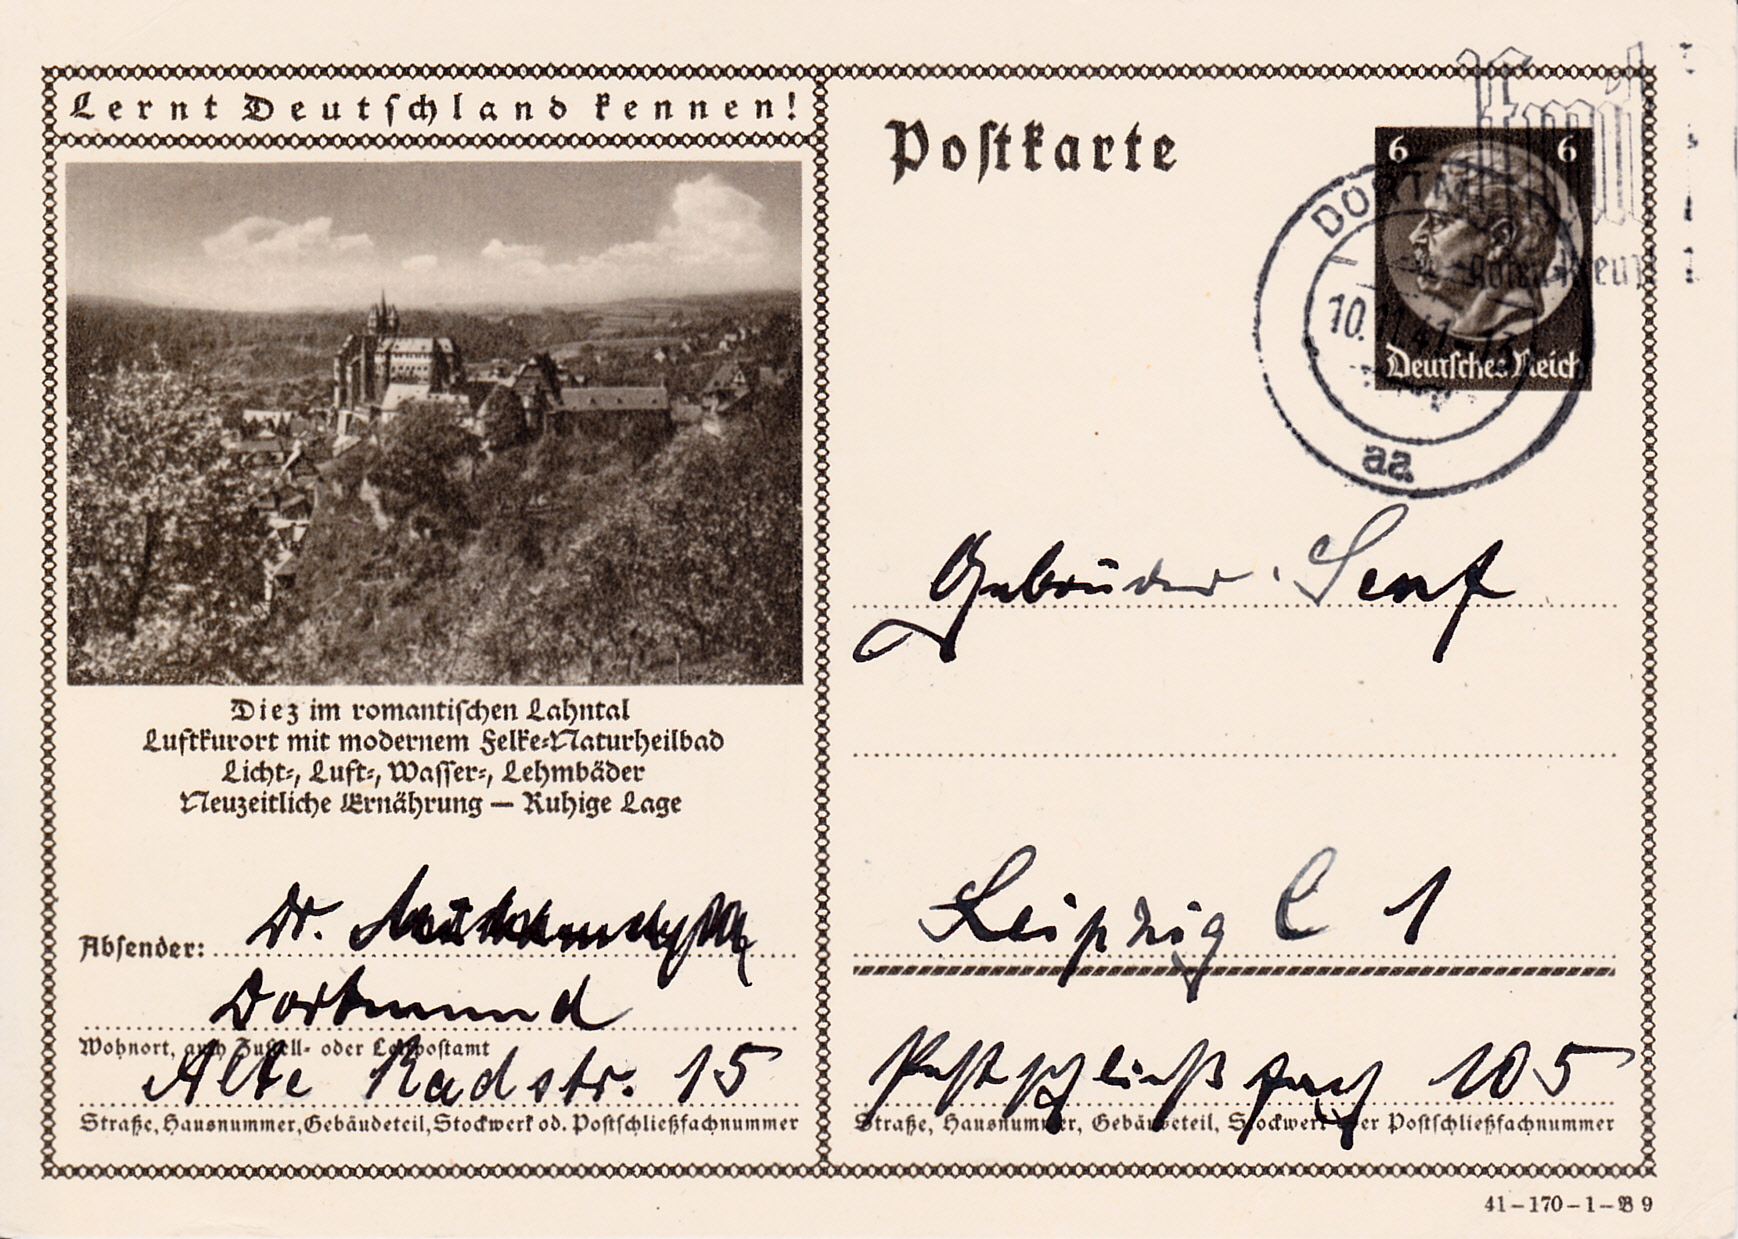 Lernt Deutschland kennen!
Postkarte
6 6
Deutsches Reich
DORTM
10. 41
aa
Diez im romantischen Lahntal
Luftkurort mit modernem Felke-Naturheilbad
Licht-, Luft-, Wasser-, Lehmbäder
Neuzeitliche Ernährung — Ruhige Lage
Gebrüder Senf
Leipzig C 1
Postschließfach 105
Straße, Hausnummer, Gebäudeteil, Stockwerk oder Postschließfachnummer
Absender: Dr.
Dortmund
Wohnort, auch Zustell- oder Leitpostamt
Alte Radstr. 15
Straße, Hausnummer, Gebäudeteil, Stockwerk od. Postschließfachnummer
41-170-1-B 9